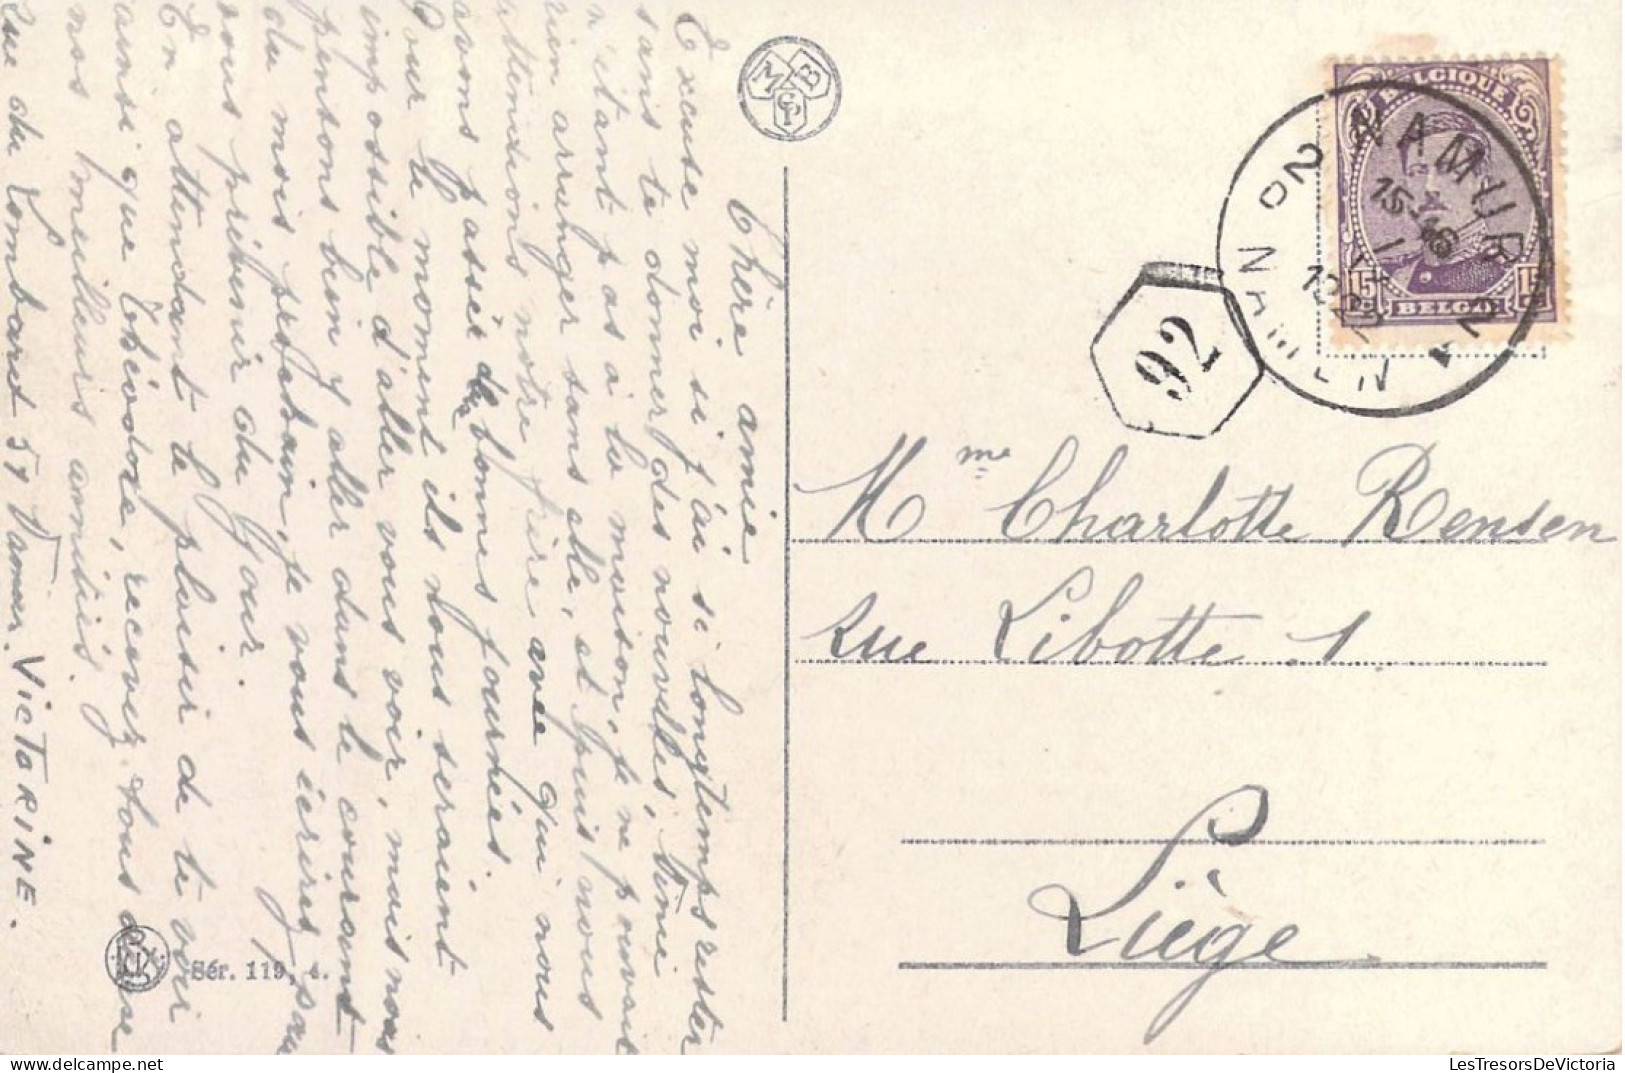 Chère amie
Excuse moi si j'ai si longtemps rester
sans te donner des nouvelles, 
n'étant pas à la maison, je ne pouvait
rien arranger sans elle, et puis nous
attendions notre frère avec qui nous
avons passer de bonnes journées.
Pour le moment ils nous seraient
impossible d'aller vous voir, mais nous
pensons bien y aller dans le courant
du mois prochain, je vous écrires pour
vous prévenir du jour.
En attendant le plaisir de te voir
ainsi que Théodore, recevez tous deux
nos meilleurs amitiés.
Rue du Lombard 51 Namur. VICTORINE.
MBCP
BELGIQUE
15 15
BELGIË
NAMUR 2
15-16
1922
NAMEN 2
92
Mme Charlotte Rensen
Rue Libotte 1
Liège.
Sér. 119, 4.
www.LesTresorsDeVictoria.com